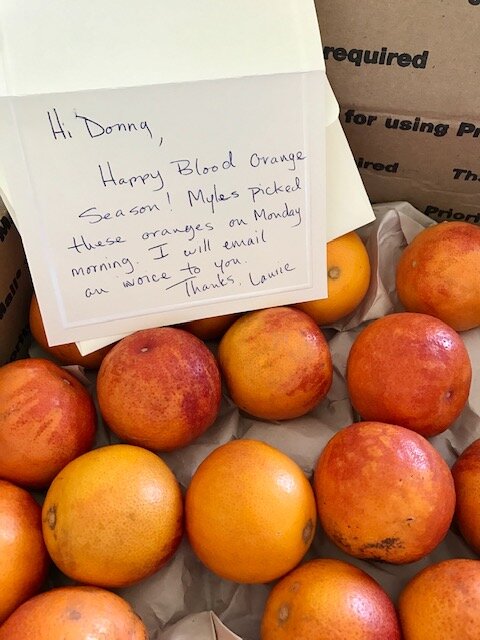 required
for using Pr
ired
Tha
Priori
Hi Donna,
Happy Blood Orange
Season! Myles picked
these oranges on Monday
morning. I will email
an invoice to you.
Thanks, Laurie